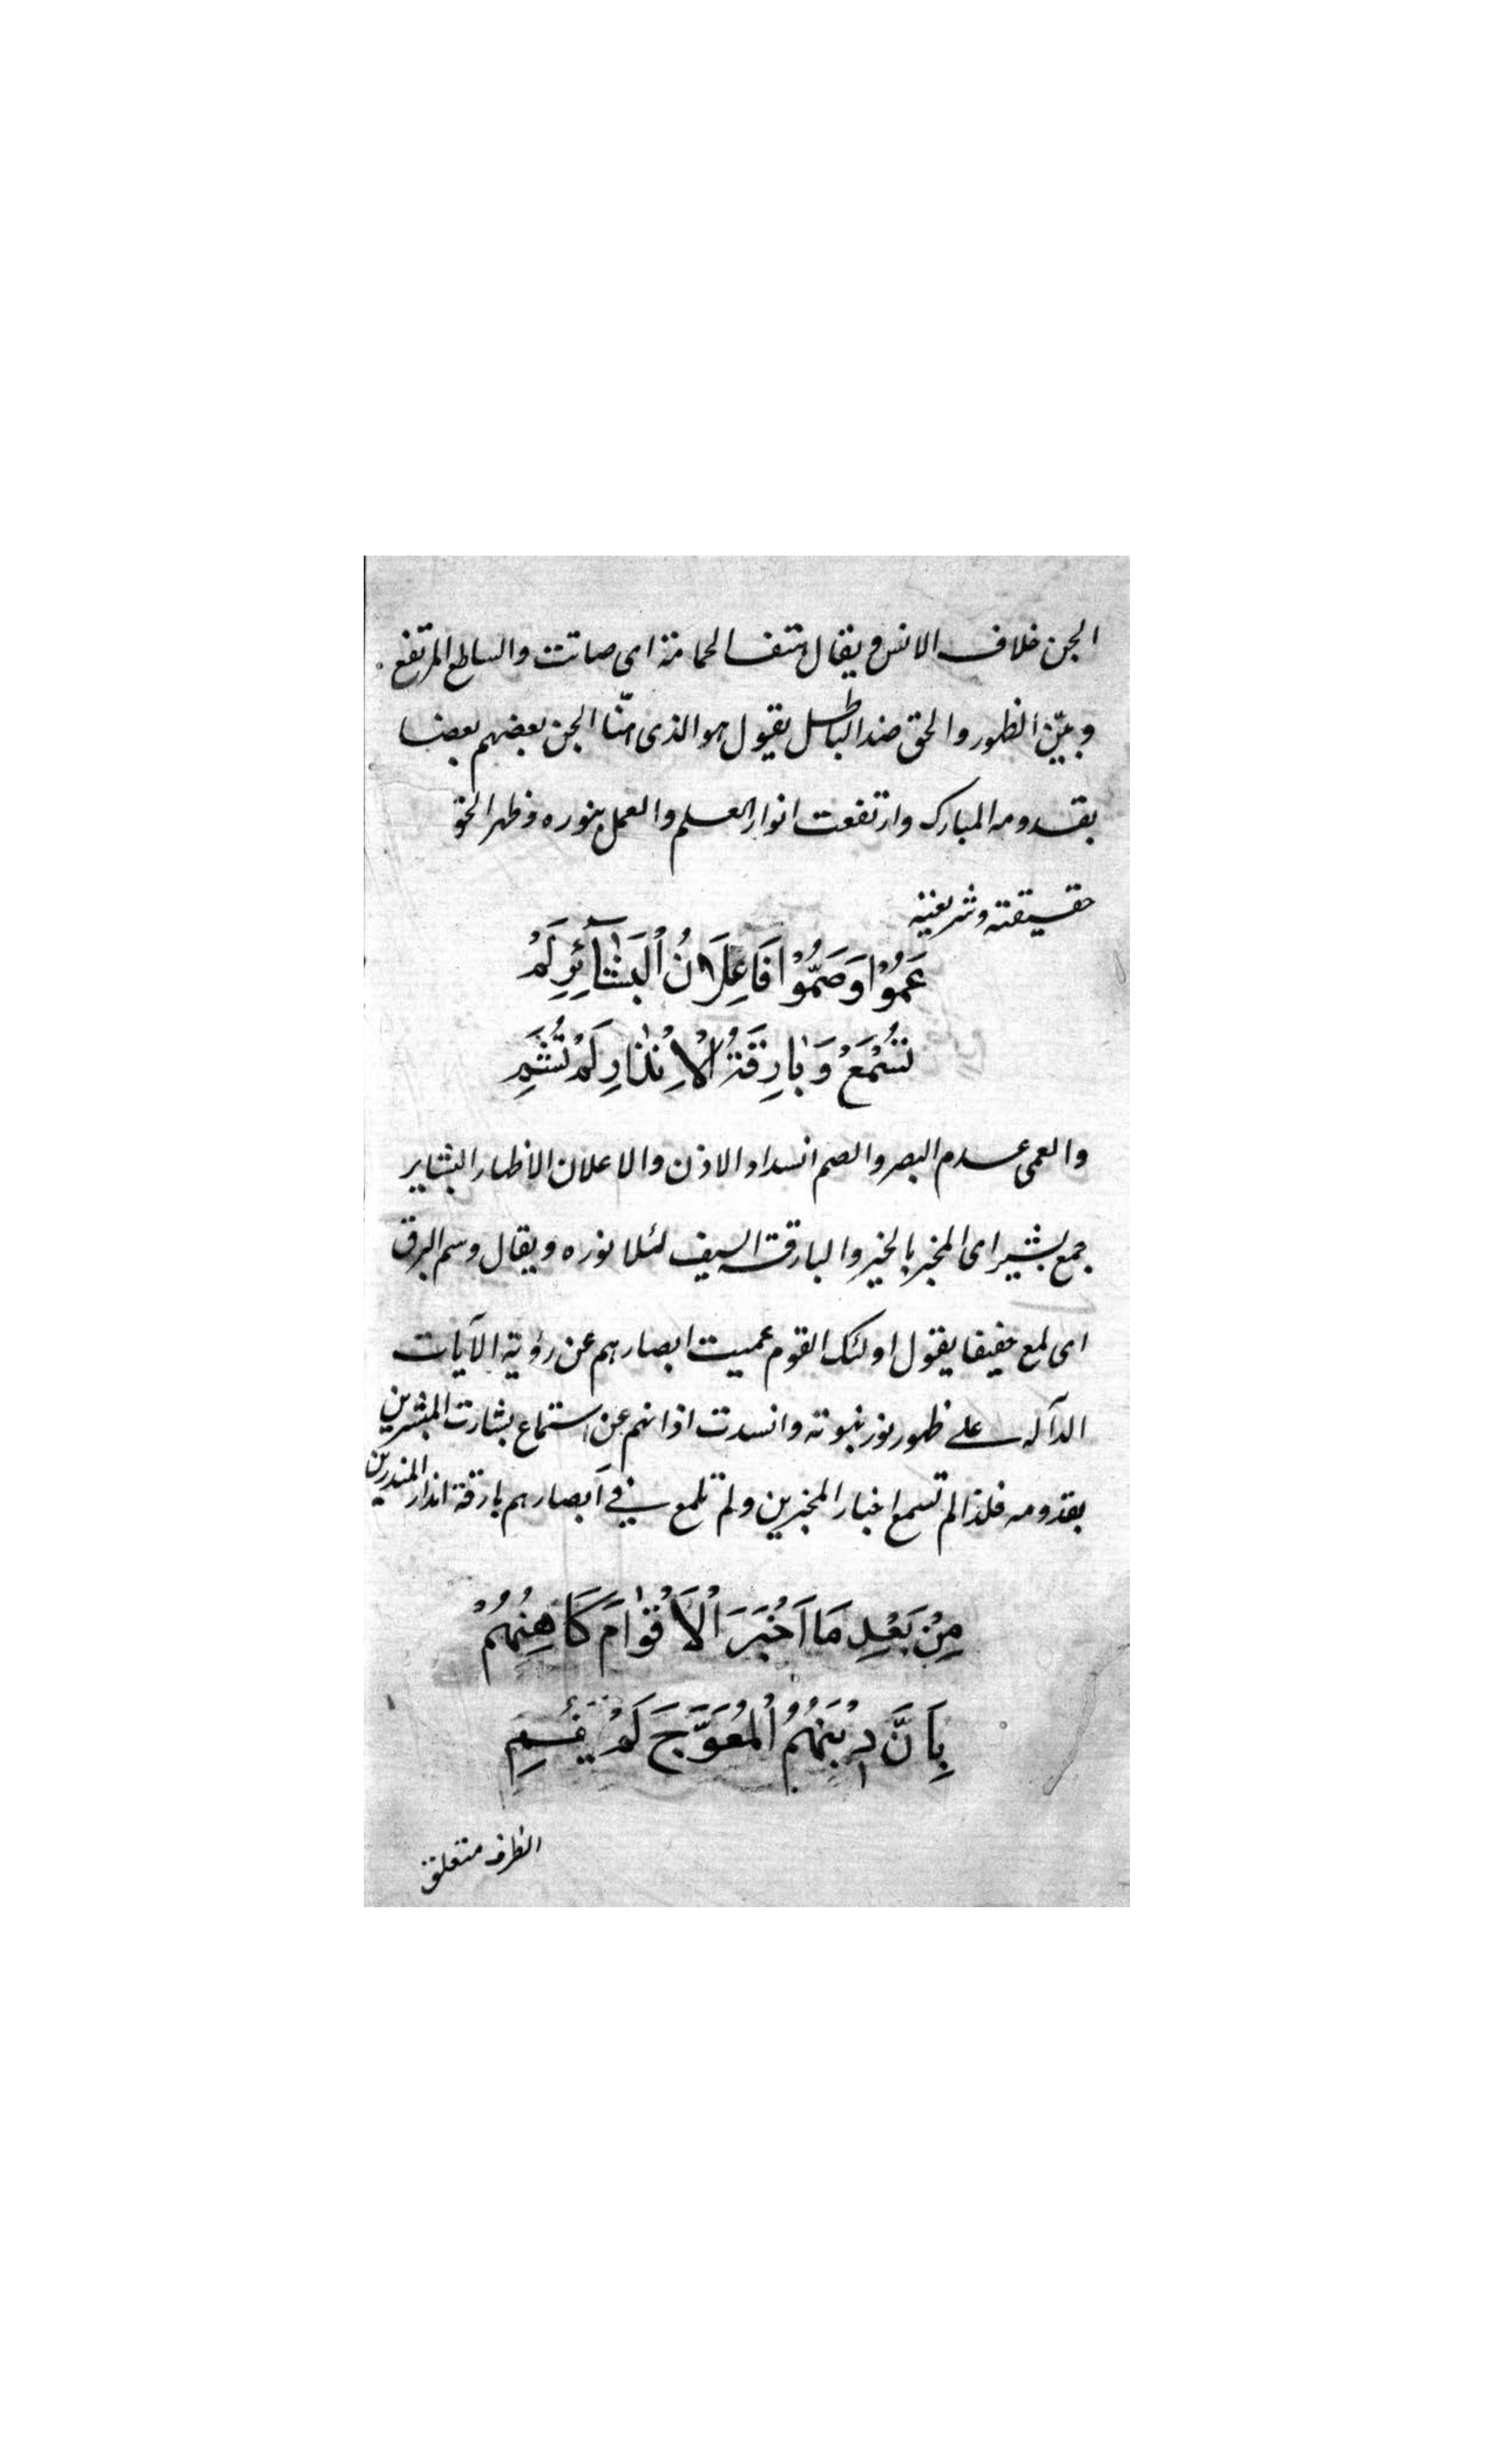 الجن خلاف الانس ويقال هتف الحمامة اى صاتت والساطع المرتفع
وبيّن الظهور والحق ضد الباطل يقول هو الذى هنّا الجن بعضهم بعضا
بقدومه المبارك وارتفعت انوار العلم والعمل بنوره وظهر الحق
حقيقته وشريعته
عَمُوْا وَصَمُّوْا فَاِعْلَانُ الْبَشَآئِرِ لَمْ
تُسْمَعْ وَبَارِقَةُ الْاِنْذَارِ لَمْ تُشَمِ
والعمى عدم البصر والصم انسداد الاذن والاعلان الاظهار البشاير
جمع بشير اى المخبر بالخير والبارقة السيف لتلا نوره ويقال وسم البرق
اى لمع خفيفا يقول اولئك القوم عميت ابصارهم عن رؤية الآيات
الدآلة على ظهور نور نبوته وانسدت اذانهم عن استماع بشارت المبشرين
بقدومه فلذا لم تسمع اخبار المخبرين ولم تلمع في ابصارهم بارقة انذار المنذرين
مِنْ بَعْدِ مَا اَخْبَرَ الْاَقْوَامَ كَاهِنُهُمْ
بِاَنَّ دِيْنَهُمُ الْمُعَوَّجَ لَمْ يَقُمِ
الظرف متعلق